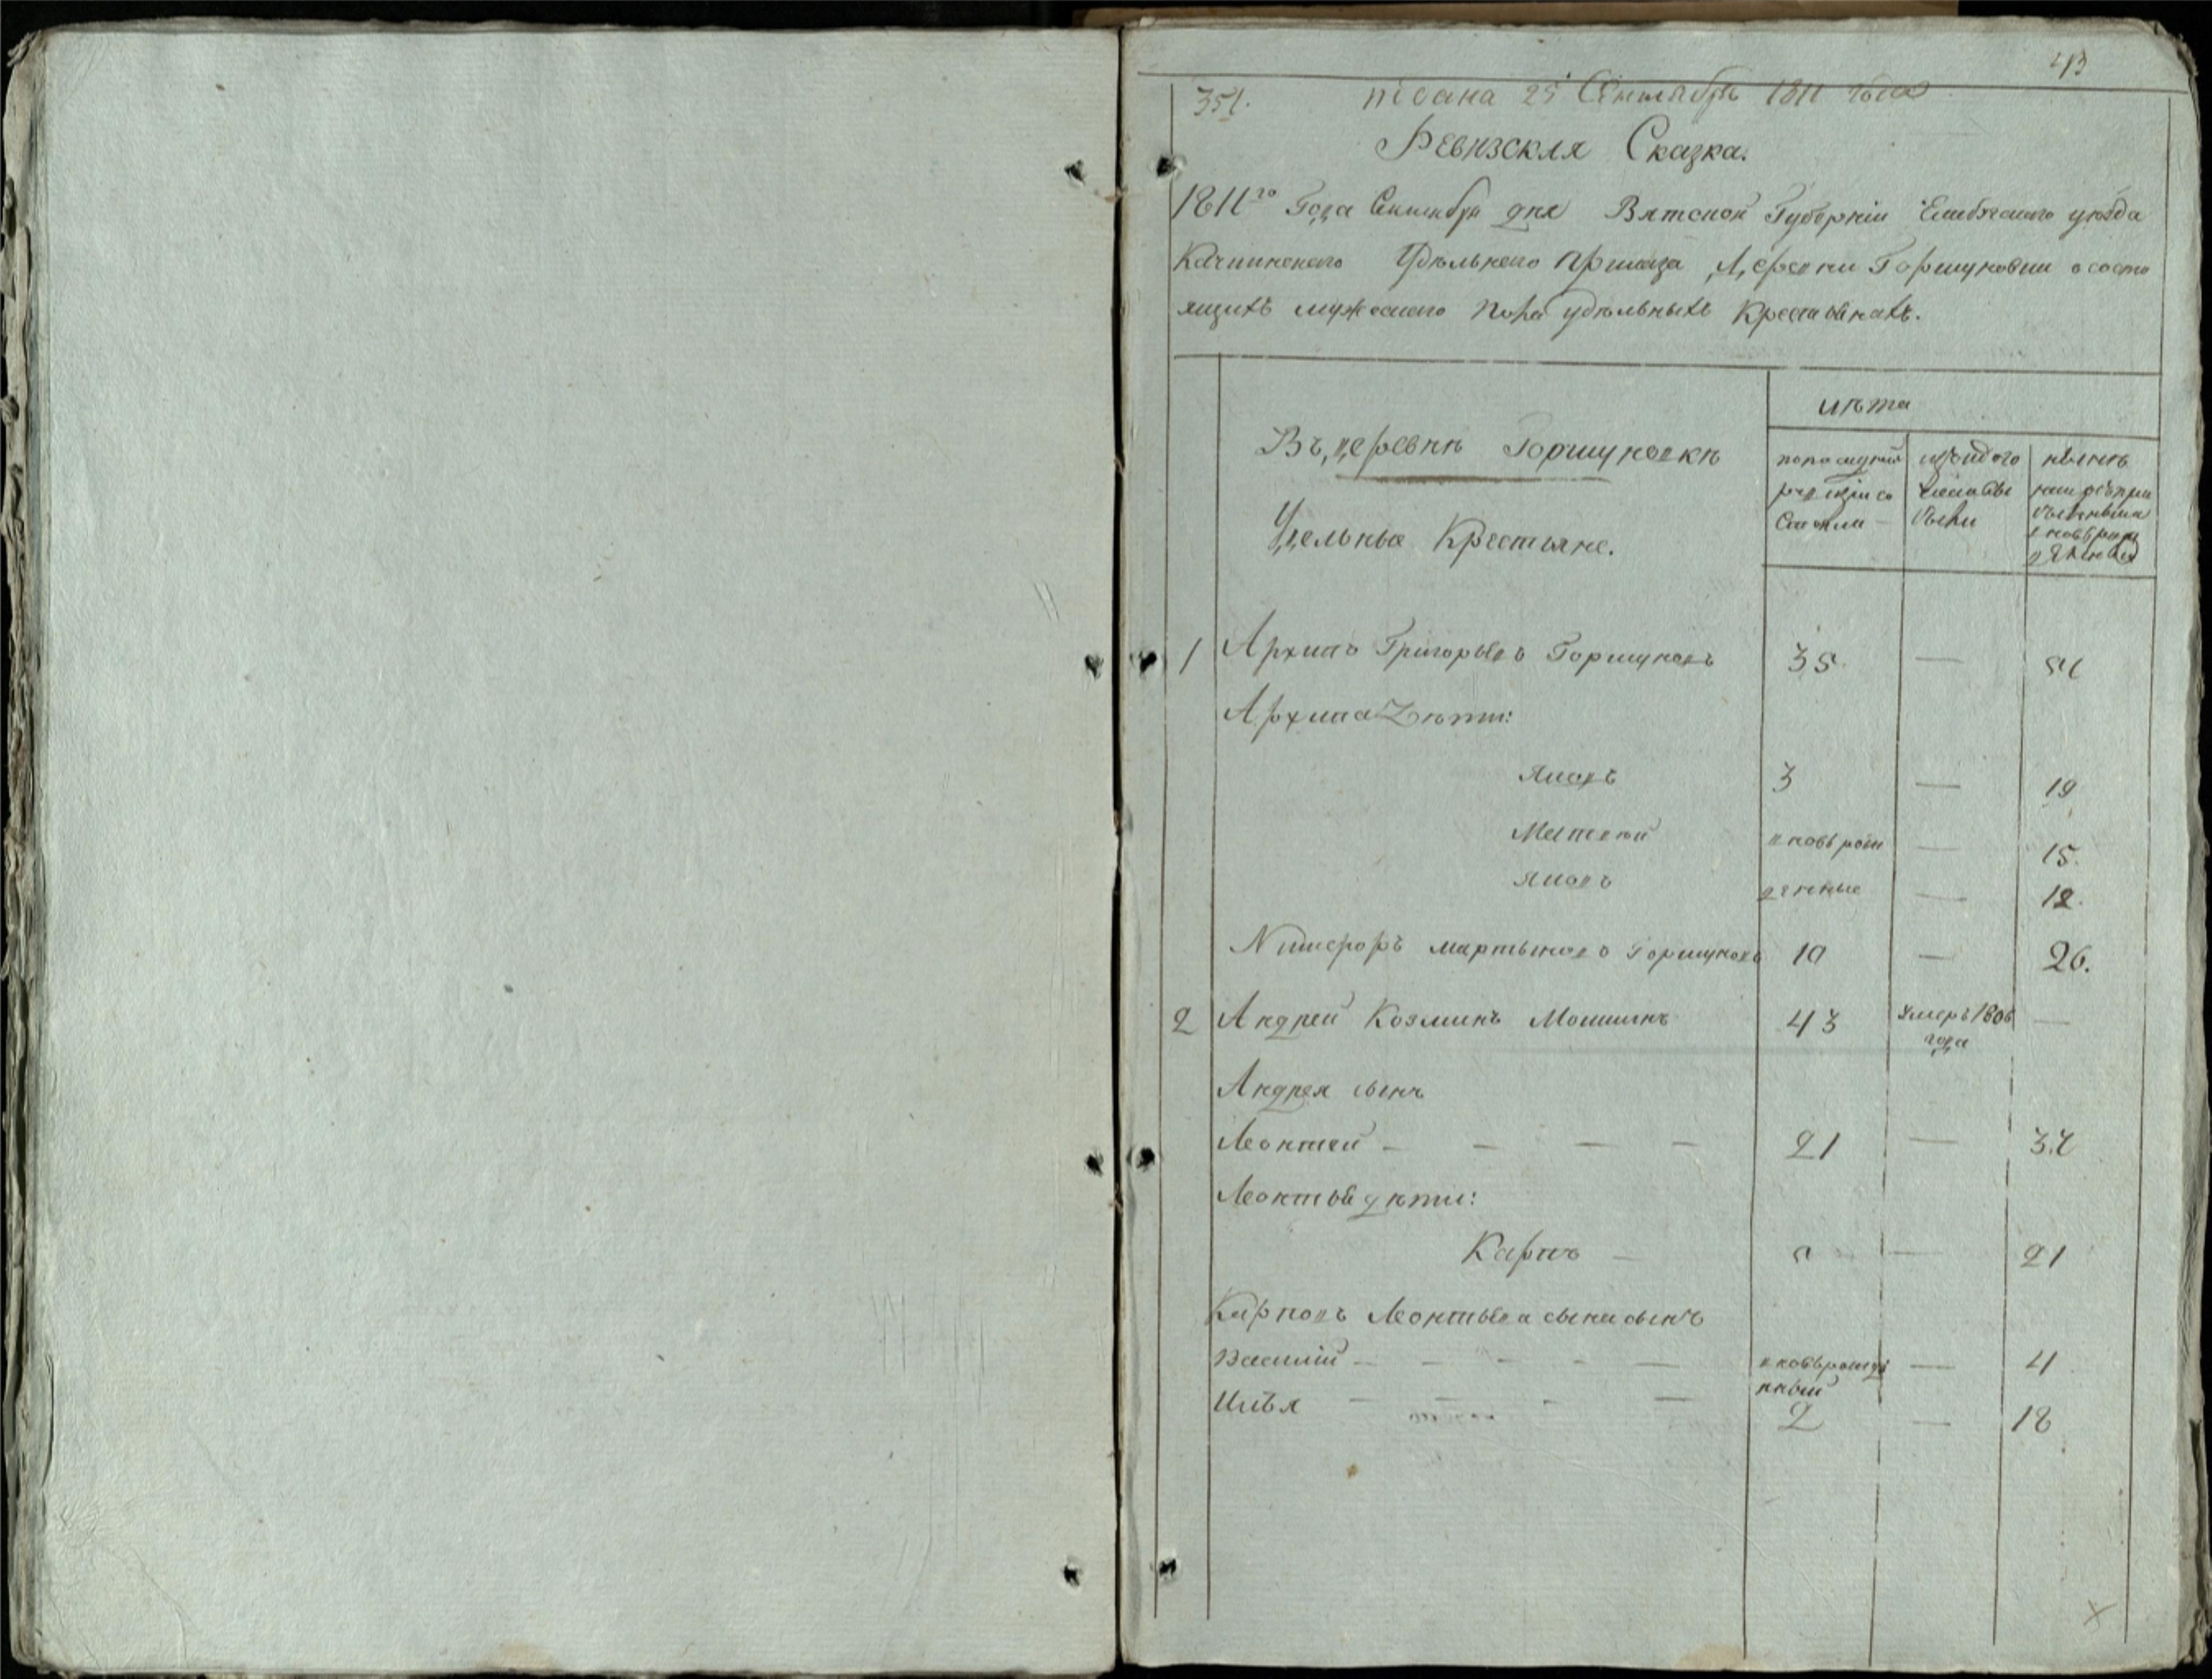 43
351. писана 25 Сентября 1811 года
Ревизская Сказка.
1811го Года Сентября дня Вятской Губерніи Елабускаго уезда
Удельнаго приказа Деревни Горшуновки о состо
ящихъ мужескаго пола удельныхъ Крестьянахъ.
лѣта
Въ деревнѣ Горшуновкѣ
Удельные Крестьяне.
по последней ревизіи состояли
изтого числа выбыли
ныне на лицо
1 Архипъ Григорьевъ Горшуновъ 35. — 51
Архипа Дѣти:
Яковъ 3 — 19
Матвѣй вновь рож — 15.
Яковъ денные — 12.
Никифоръ Мартыновъ Горшуновъ 10 — 26.
2 Андрей Козминъ 43 умеръ 1806 —
года
Андрея сынъ
Леонтей — — — — 21 — 37
Леонтья дѣти:
Карпъ — 5 — 21
Карповъ Леонтьева сына сынъ
Василий — — — — — вновь рожде — 4
нный
Илья — — — — 2 — 18